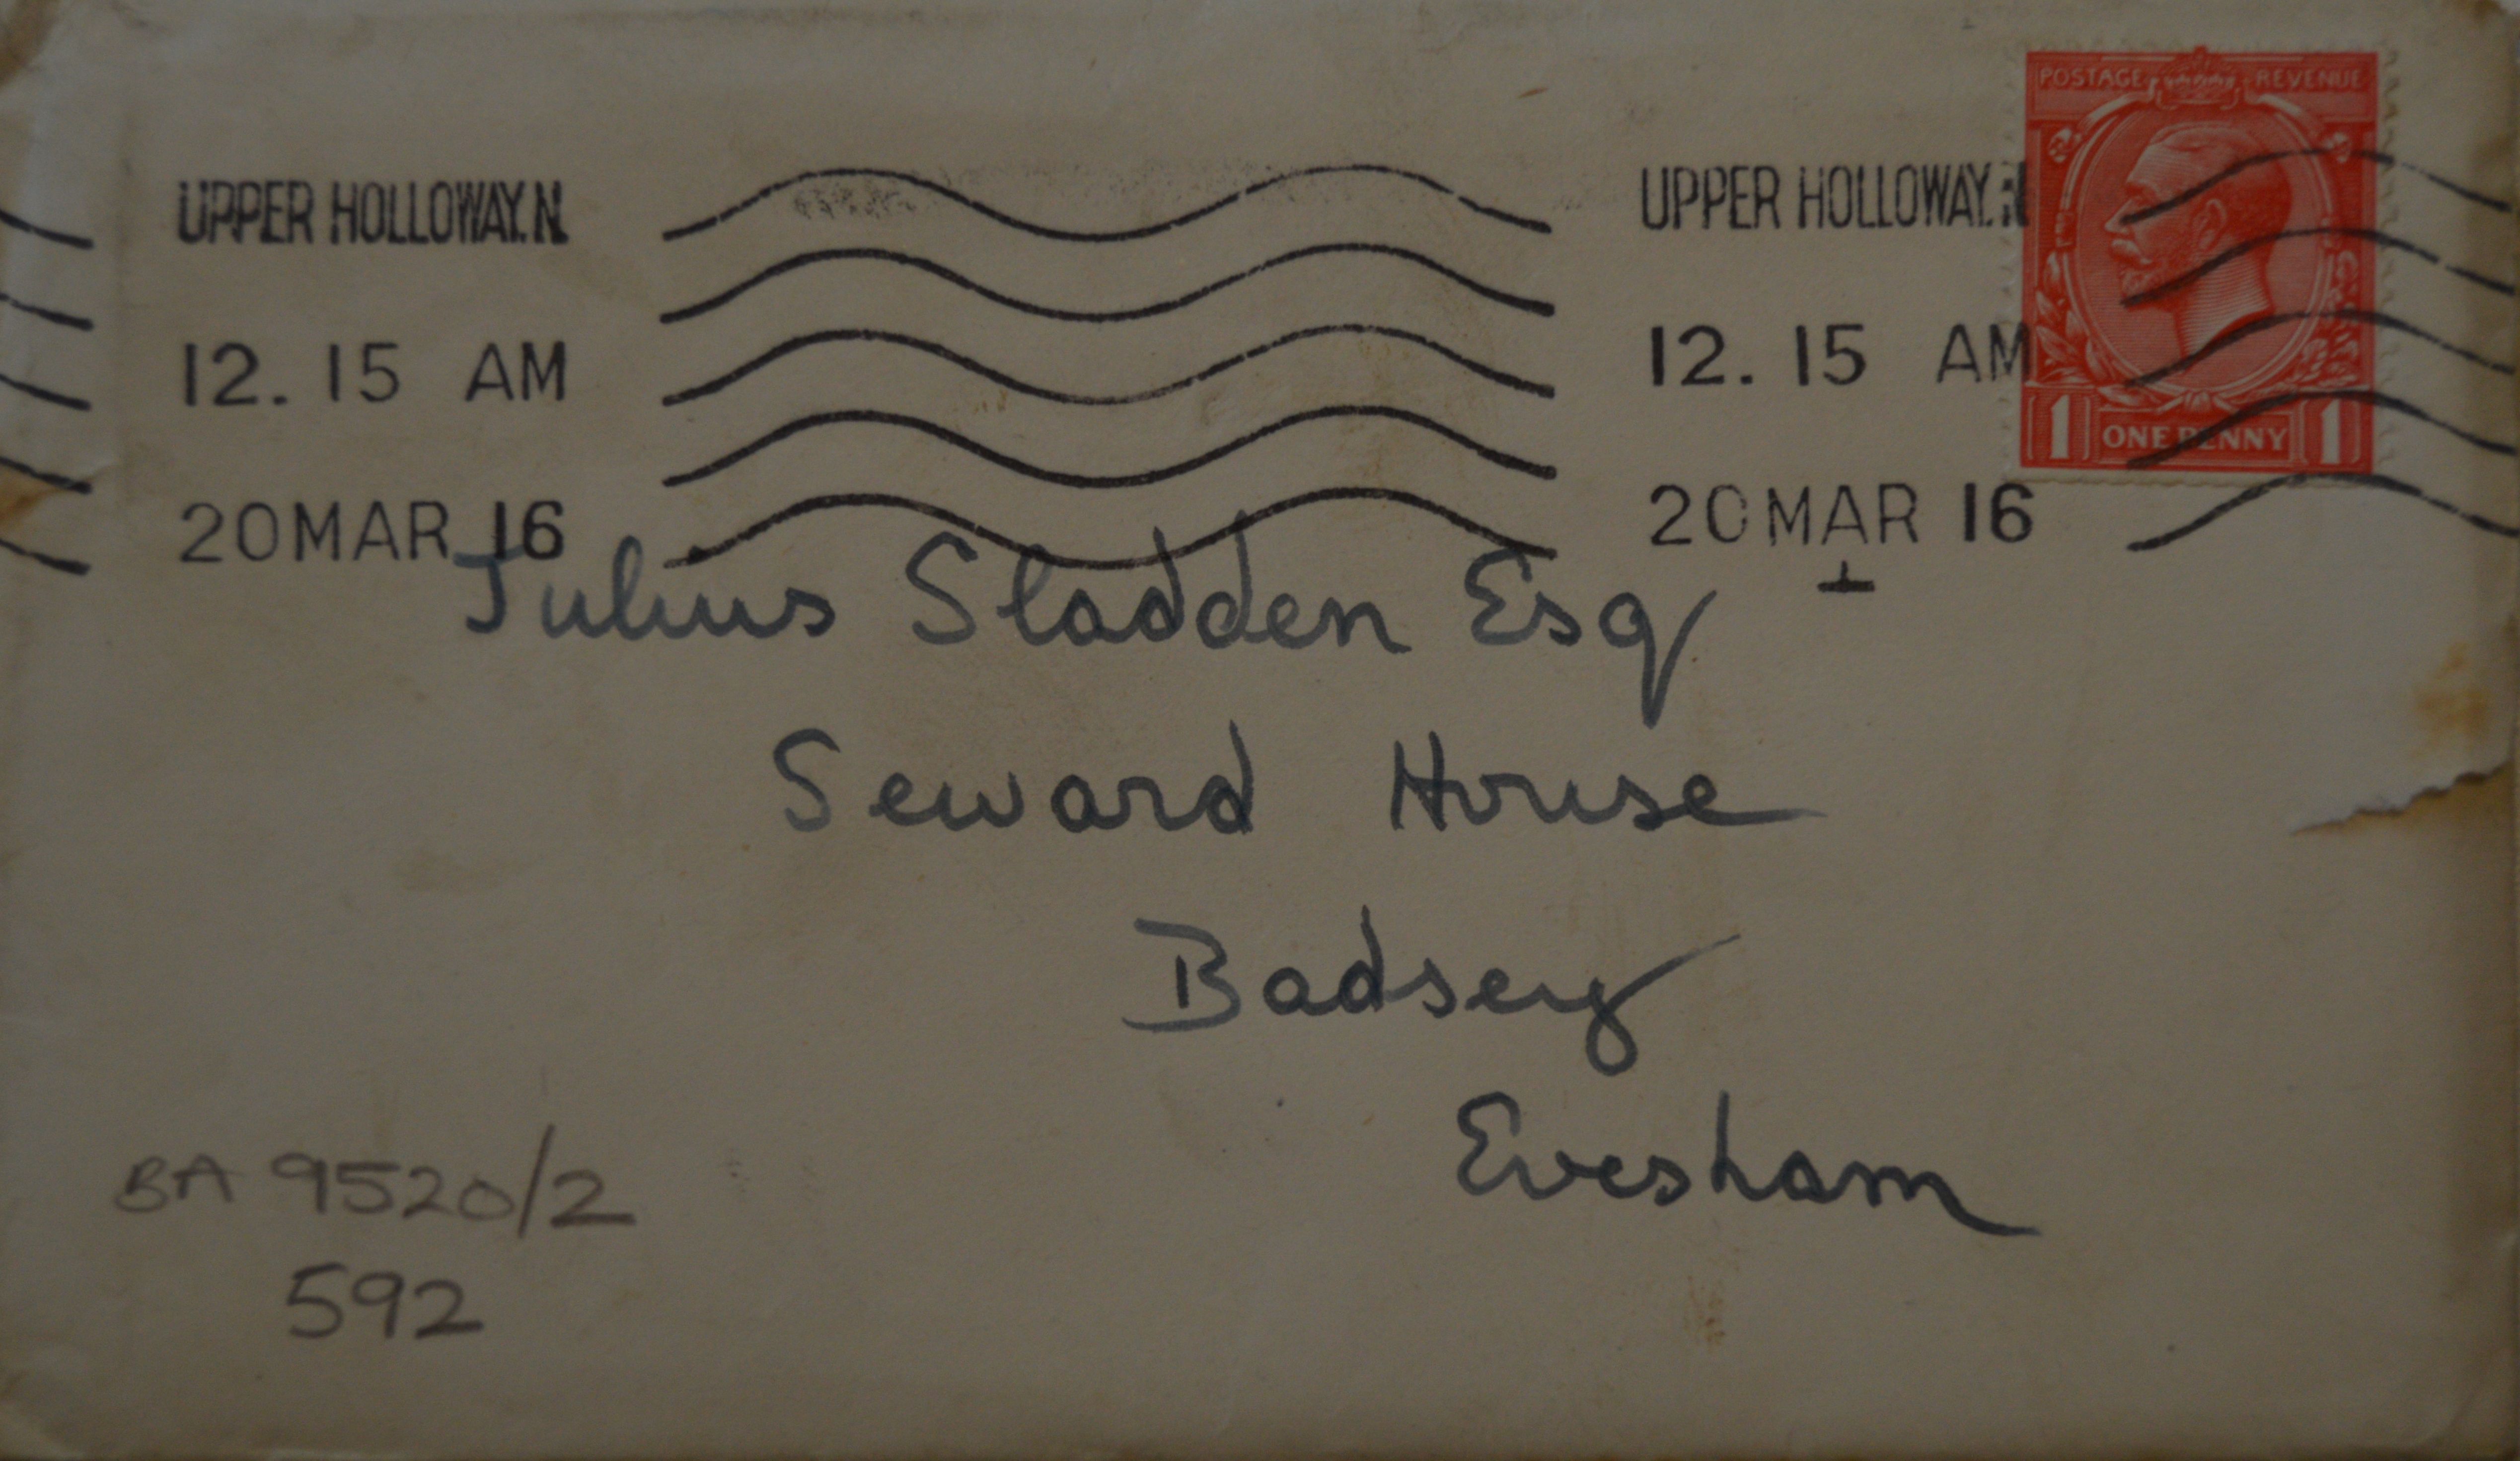 POSTAGE REVENUE
UPPER HOLLOWAY.N. UPPER HOLLOWAY.N
12.15 AM 12.15 AM
1 ONE PENNY 1
20 MAR 16 20 MAR 16
Julius Sladden Esq
Seward House
Badsey
Evesham
BA 9520/2
592